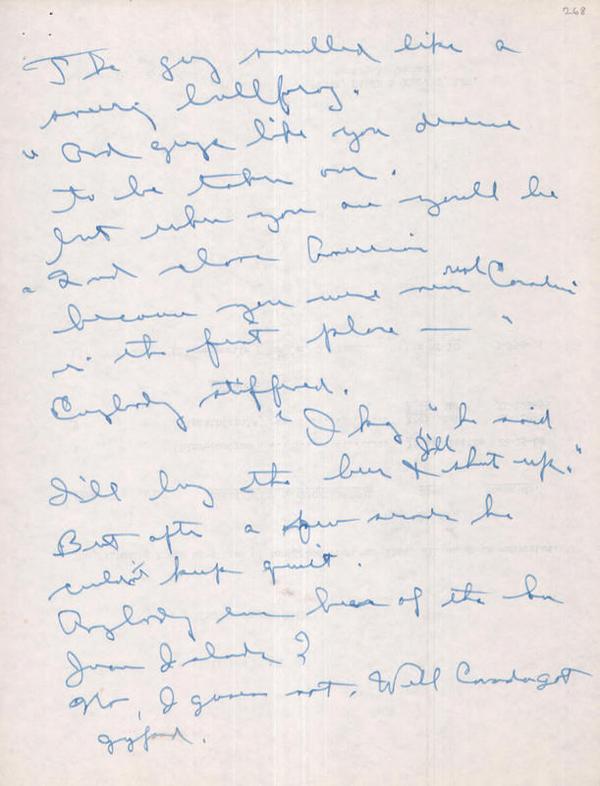 268
The guy smelled like a
bullfrog.
" And guys like you deserve
to be taken over.
but when you are you'll be
"And alone American
because you were never real Canadian
in the first place — "
Everybody stiffened.
" I beg " he said
I'll buy the beer & I'll shut up."
But after a few seconds he
couldn't keep quiet.
Anybody ever hear of the San
Juan Islands?
No, I guess not. Well Canada got
gypped.